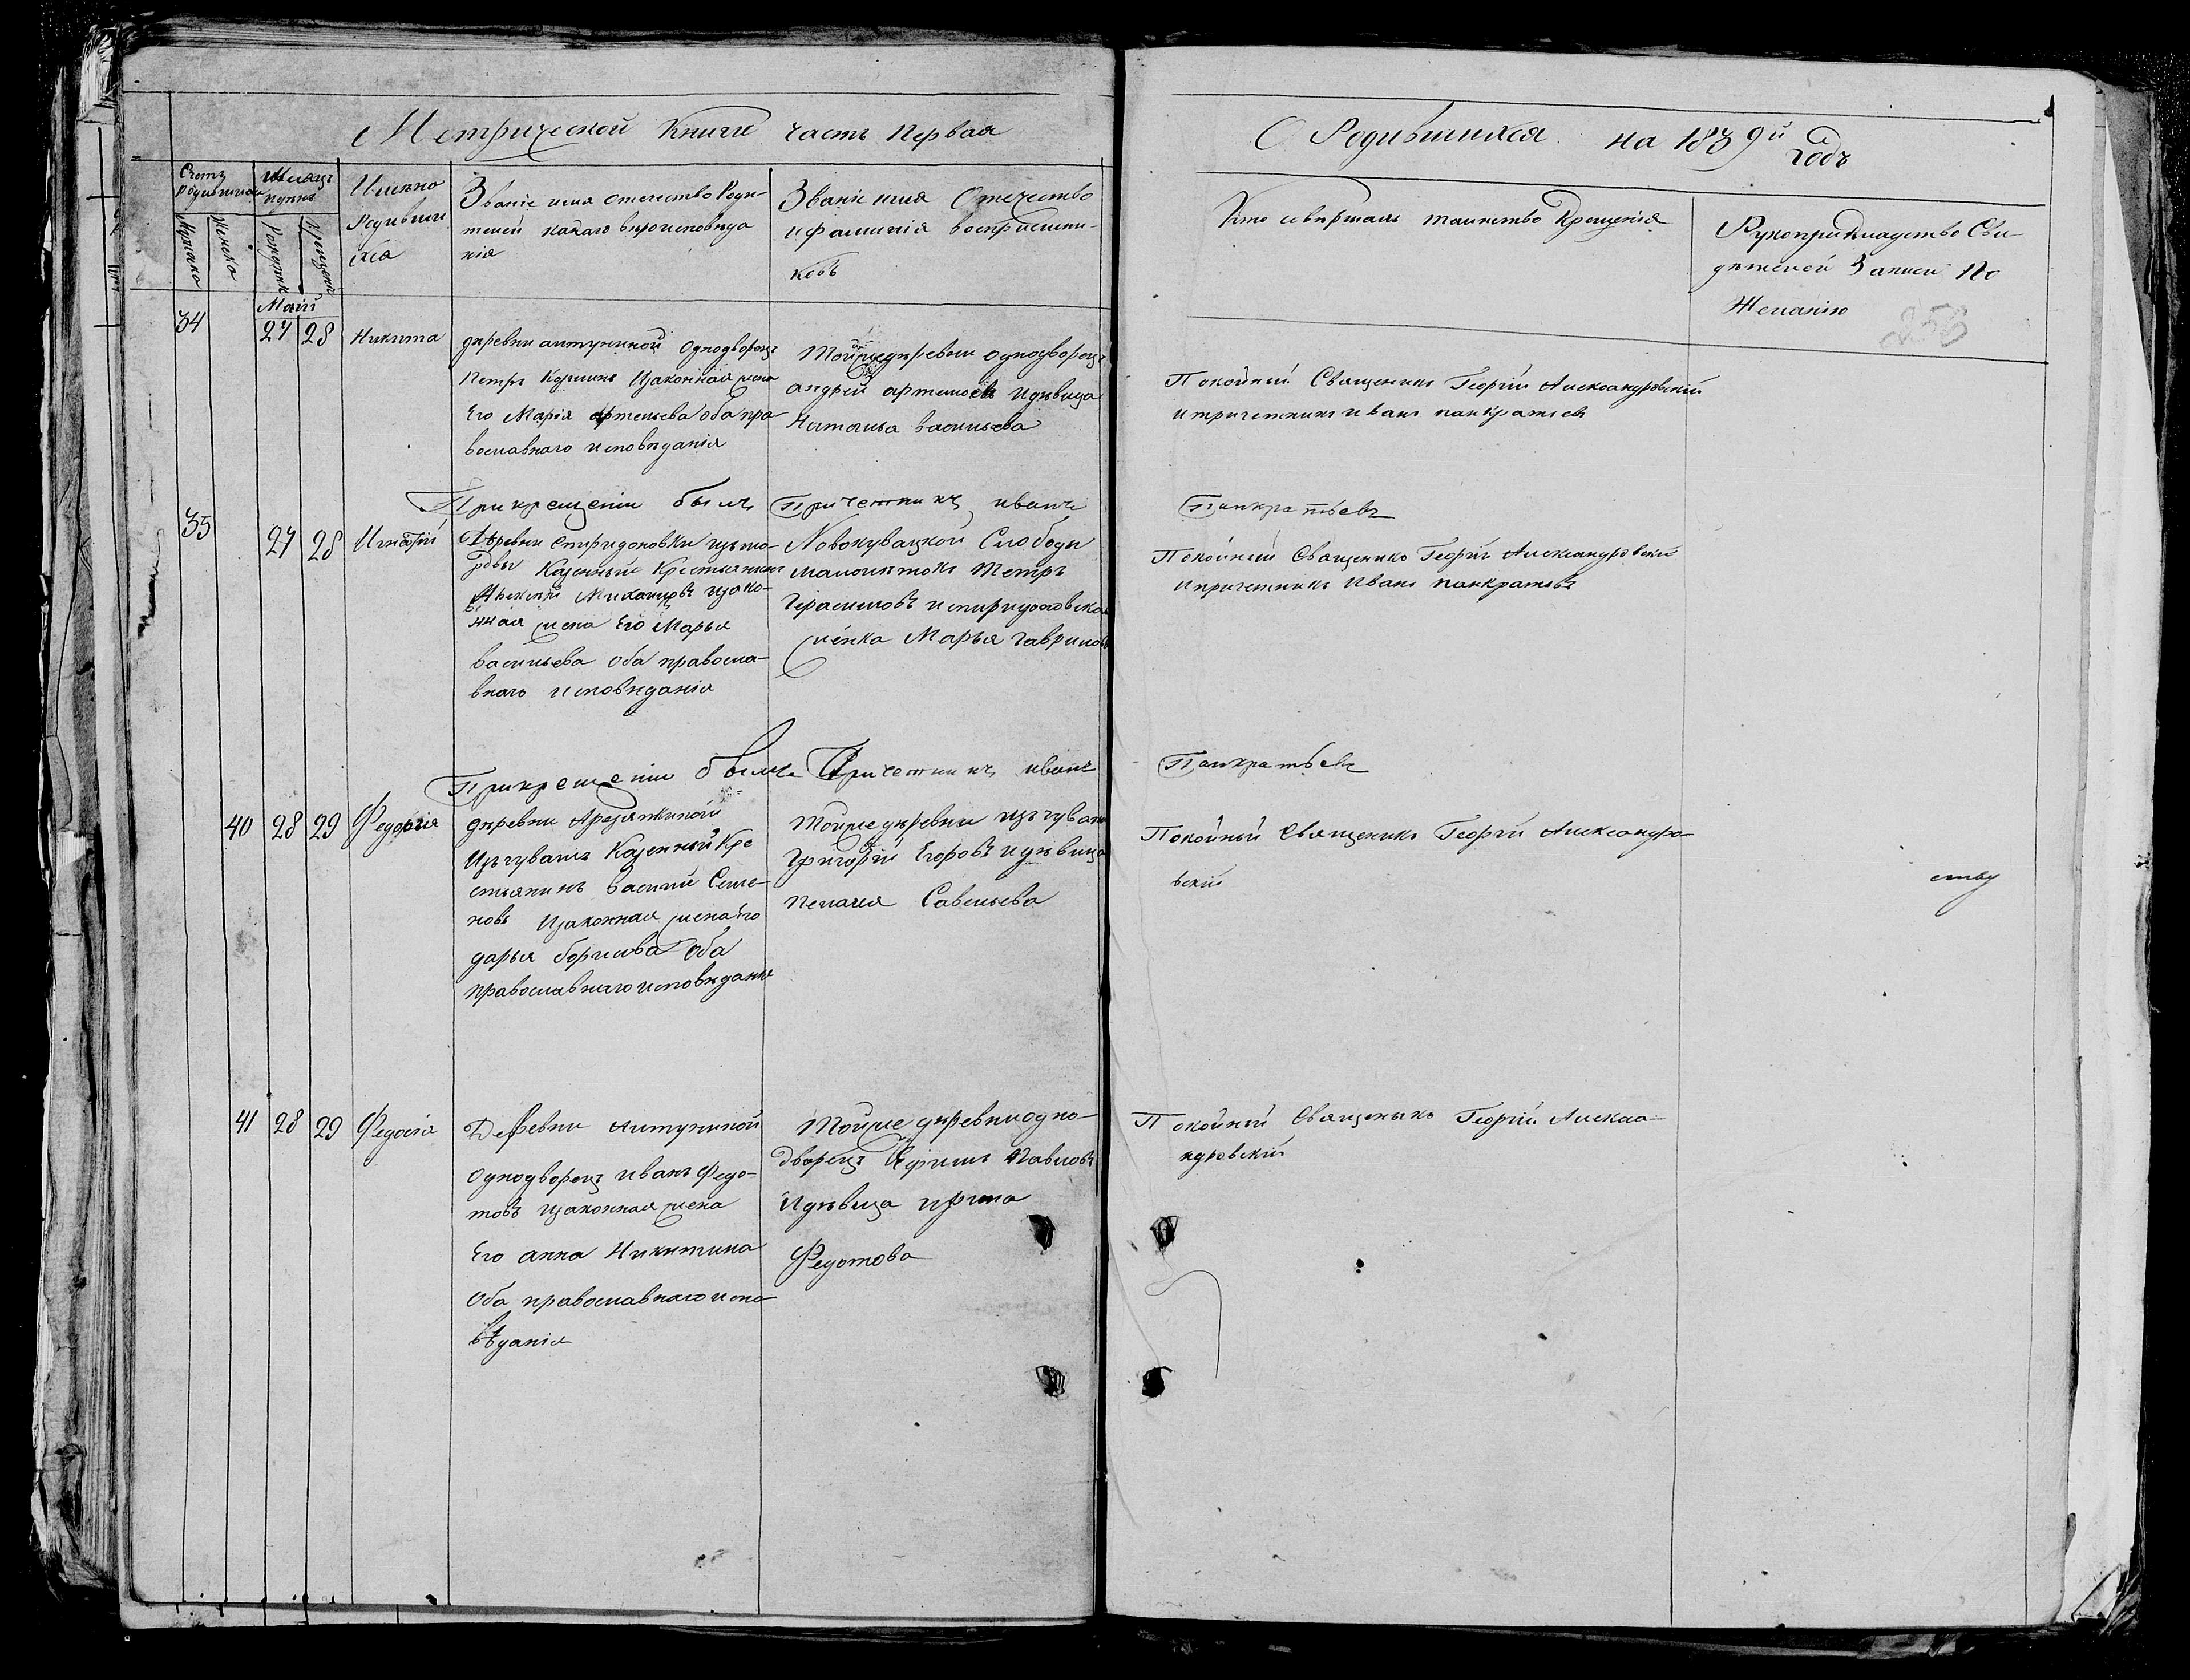 Метрической Книги часть Первая
О Родившихся на 1839й Годъ
Счетъ Родившихся
Мужеска
Женска
Месяцъ
Рождения
Крещения
Имена
Родивши
хся
Званіе имя отечество Роди-
телей какаго вероисповеда
нія
Званіе имя Отечество
и фамилія воспріемни-
ковъ
Кто совершалъ таинство Крещенія
Рукоприкладство Сви-
детелей Записи По
Желанію
Маій
34 27 28 Никита
деревни антуниной Однодворецъ
Петръ изаконная жена
Его Марія артемьева оба пра
вославнаго исповеданія
тойже деревни однодворецъ
андрей артемьевъ идевица
Наталья васильева
Покойный Священикъ Георгій Александровскій
ипричетникъ иванъ панкратьевъ
Прикрещеніи былъ Причетникъ иванъ Панкратьевъ
35 27 28 Игнатій
Деревни спиридоновки
Казенный Крестьянинъ
изако-
нная жена Его Марья
васильева оба правосла-
внаго исповеданія
Слободы
Петръ
Герасимовъ испиридоновска
женка Марья гаврилов
Покойный Священикъ Георгій Александровскій
ипричетникъ Иванъ панкратьевъ
Прикрещеніи былъ Причетникъ иванъ Панкратьевъ
40 28 29
деревни
Изчувашъ Казенный Кре
стьянинъ василий Семе-
новъ Изаконная жена его
дарья борисова Оба
православнаго исповеданія
Тойже деревни изъ чуваш
Григорій Егоровъ идевица
пелагея Савельева
Покойный Священикъ Георгій Александро-
вскій
ству
41 28 29 Федосія
Деревни Антуниной
Однодворецъ иванъ Федо-
товъ изаконная жена
Его анна Никитина
Оба православнаго испо-
вѣданія
Тойже деревни одно-
дворецъ Ефимъ Павловъ
Идевица ирина
Федотова
Покойный Священикъ Георгій Алекса-
ндровскій